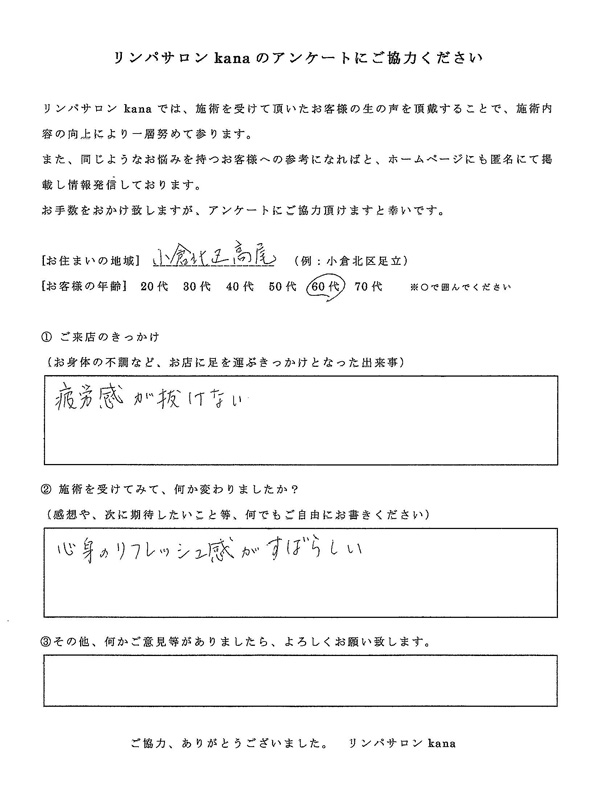 リンパサロン kana のアンケートにご協力ください
リンパサロン kana では、施術を受けて頂いたお客様の生の声を頂戴することで、施術内
容の向上により一層努めて参ります。
また、同じようなお悩みを持つお客様への参考になればと、ホームページにも匿名にて掲
載し情報発信しております。
お手数をおかけ致しますが、アンケートにご協力頂けますと幸いです。
[お住まいの地域] 小倉北区高尾 (例：小倉北区足立)
[お客様の年齢] 20代 30代 40代 50代 60代 70代 ※○で囲んでください
① ご来店のきっかけ
(お身体の不調など、お店に足を運ぶきっかけとなった出来事)
疲労感が抜けない
② 施術を受けてみて、何か変わりましたか？
(感想や、次に期待したいこと等、何でもご自由にお書きください)
心身のリフレッシュ感がすばらしい
③その他、何かご意見等がありましたら、よろしくお願い致します。
ご協力、ありがとうございました。 リンパサロン kana